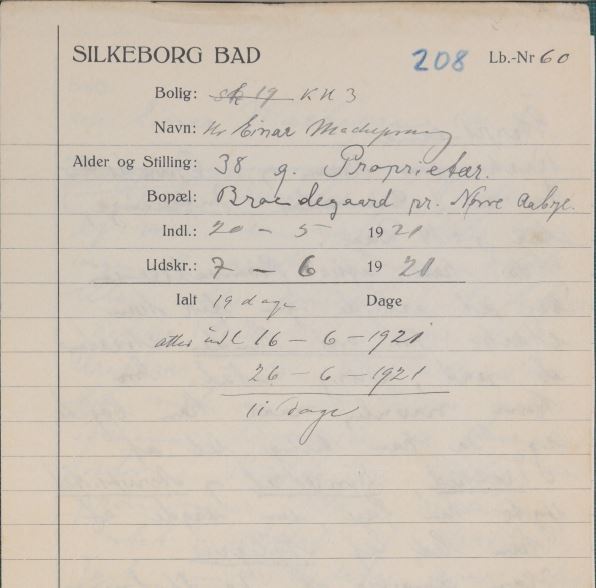 SILKEBORG BAD 208 Lb.-Nr 60
Bolig: 19 KH 3
Navn: Hr Einar
Alder og Stilling: 38 g. Proprietær.
Bopæl: Broendegaard pr. Nørre Aabye.
Indl.: 20 - 5 1921
Udskr.: 7 - 6 1921
Ialt 19 dage Dage
atter indl 16 - 6 - 1921
26 - 6 - 1921
11 dage